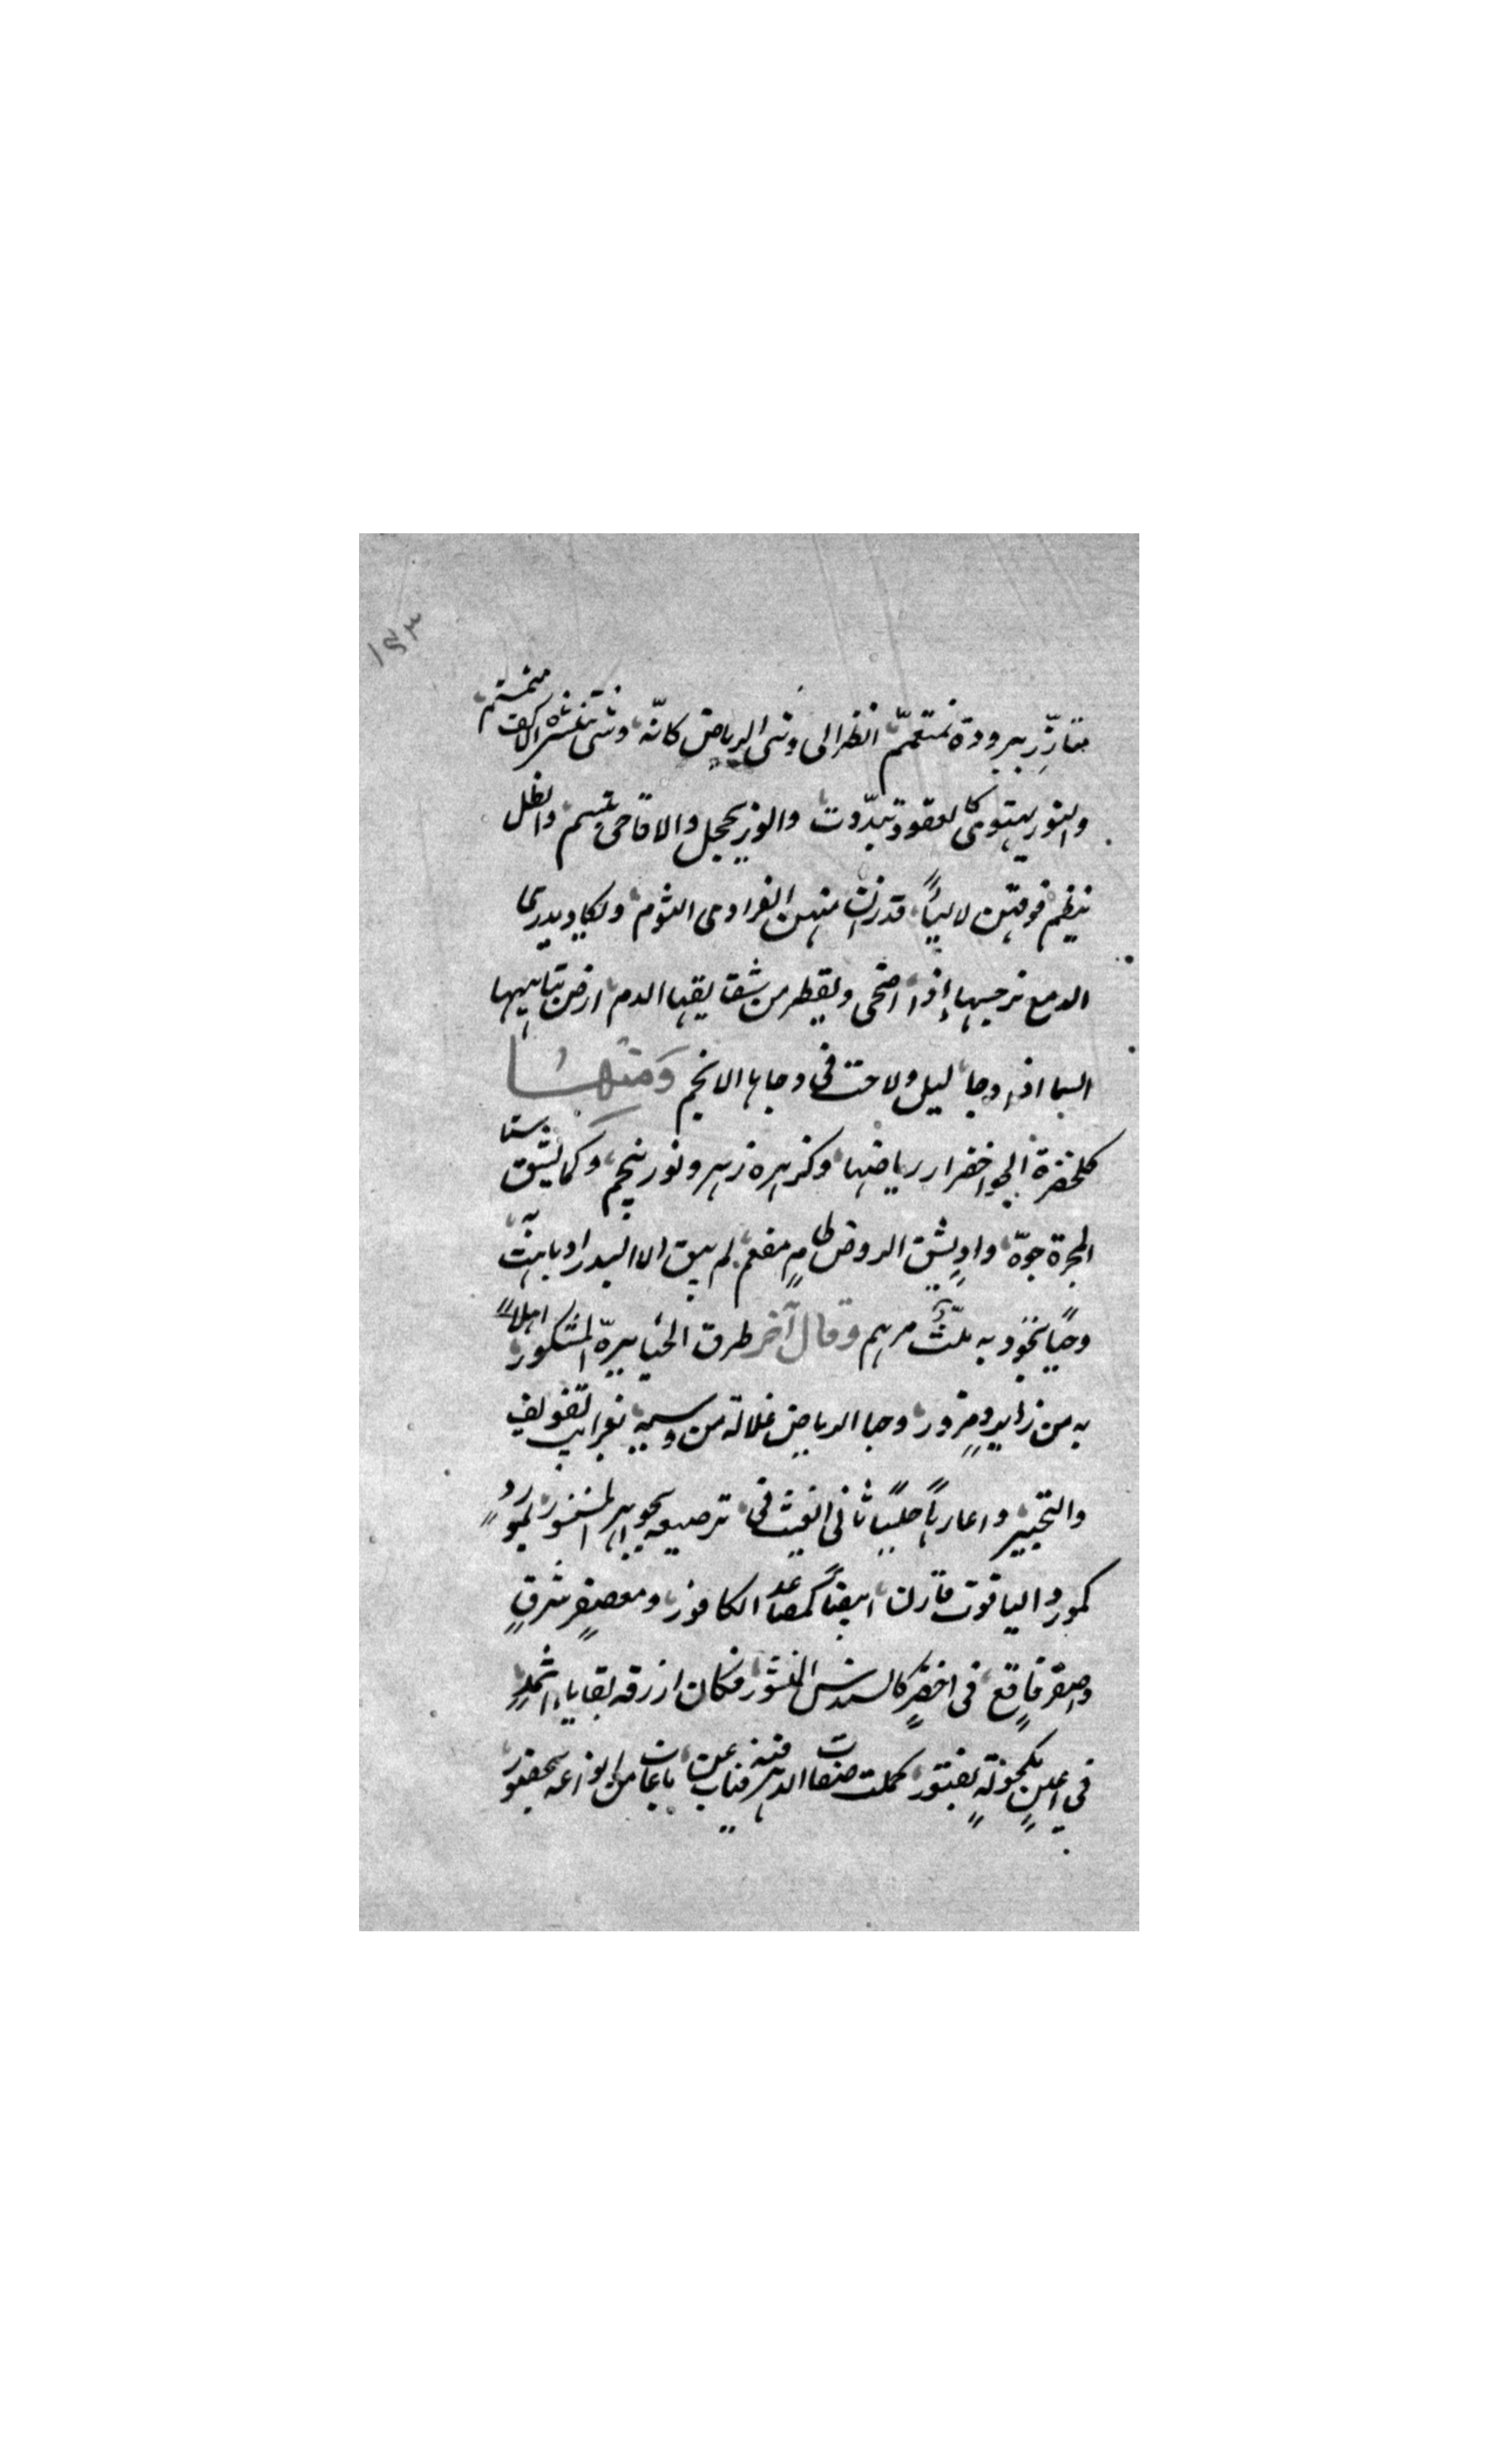 ١٤٣
متازّر ببرودة متعمّم انظر الى وشى الرياض كانّه وشى تنشّره الاكف منمنم
والنور يهوى كالعقود تبدّدت والورد يخجل والاقاحى تبسم والطل
ينظم فوقهن لالياً قد زان منهن الفرادى التوم ويكاد يذرى
الدمع نرجسها إذا اضحى ويقطر من شقايقها الدم ارض تباهيها
السما اذا دجا ليل ولاحت فى دجاها الانجم ومنها
كلخضرة الجو اخضرار رياضها وكزهره زهر ونور ينجم وكما يشق سنا
المجرة جوّه واد يشق الروض طامٍ مفعم لم يبق الا البدر اذ باهت به
وحياً يجود به ملثّ مرهم وقال آخر طرق الحيا ببرّه المشكور اهلاً
به من زايرٍ ومزور وحبا الرياض غلالة من وسيه بغرايب التفويف
والتحبير واعارها حلياً تانى الغيث فى ترصيعه بجواهر المنثور بمورد
كمورد الياقوت قارن ابيضاً كمصاعد الكافور ومعصفرٍ شرقٍ
واصفر فاقع فى اخضرٍ كالسندس المنشور فكان ازرقه بقايا اثمدٍ
في اعينٍ مكحولةٍ بفتور كملت صفات الزهر فيه فناب عن ما غاب من انواعه بحضور